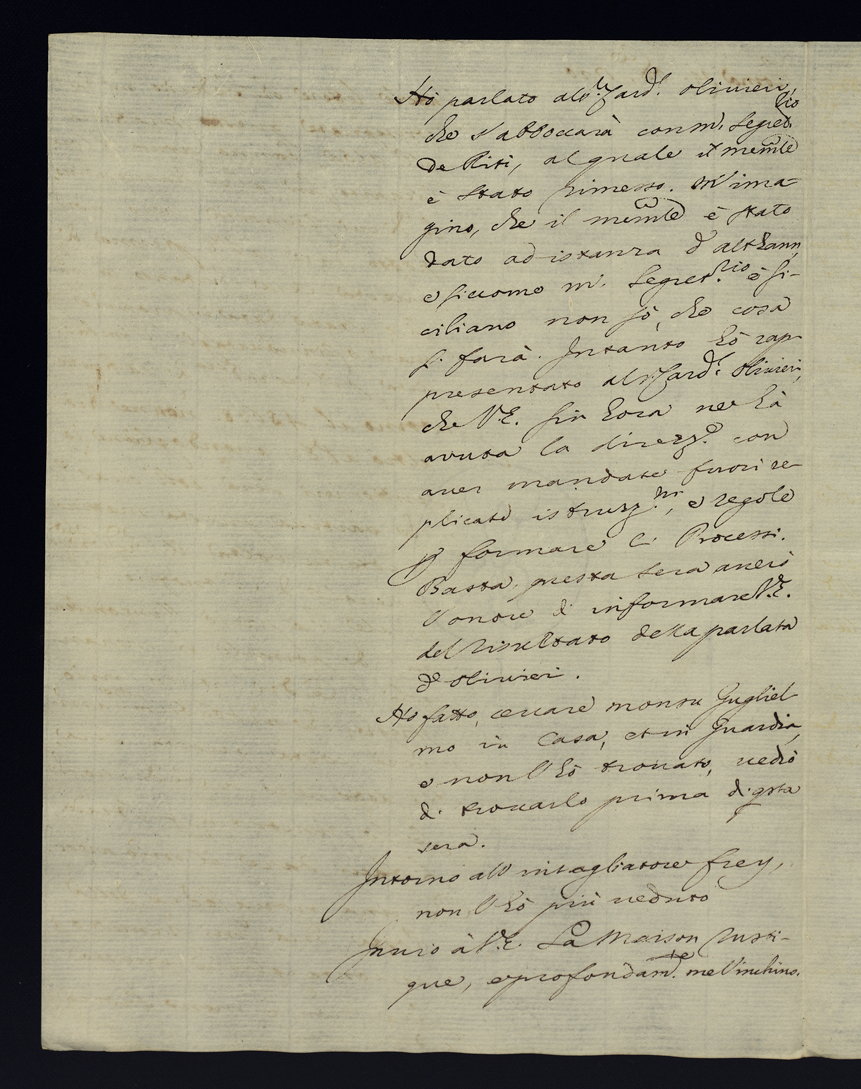 Hò parlato all'e.ᵐ Card.ˡ Olivieri,
che s'abboccarà con m.ʳ Segret.ʳⁱᵒ
de Riti, al quale il mem̃le
è stato rimesso. M'ima-
gino, che il mem̃le è stato
dato ad istanza d'Althann,
e siccome m.ʳ Segret.ʳⁱᵒ è si-
ciliano non sò, che cosa
si farà. Intanto hò rap-
presentato al Sr. Card.ˡ Olivieri,
che V.E. sin hora ne hà
avuta la direzz.ᵉ con
aver mandate fuori re-
plicate istruzz.ⁿⁱ, e regole
p formare li Processi.
Basta questa sera averò
l'onore di informare V.E.
del risultato della parlata
di Olivieri.
Hò fatto cercare monsu Gugliel-
mo in Casa, et in Guardia,
e non l'hò trovato, vedrò
di trovarlo prima di qsta
sera.
Intorno all'intagliatore frey,
non l'hò più veduto
Invio à V.E. La Maison Rusti-
que, e profondam.ᵗᵉ me l'inchino.